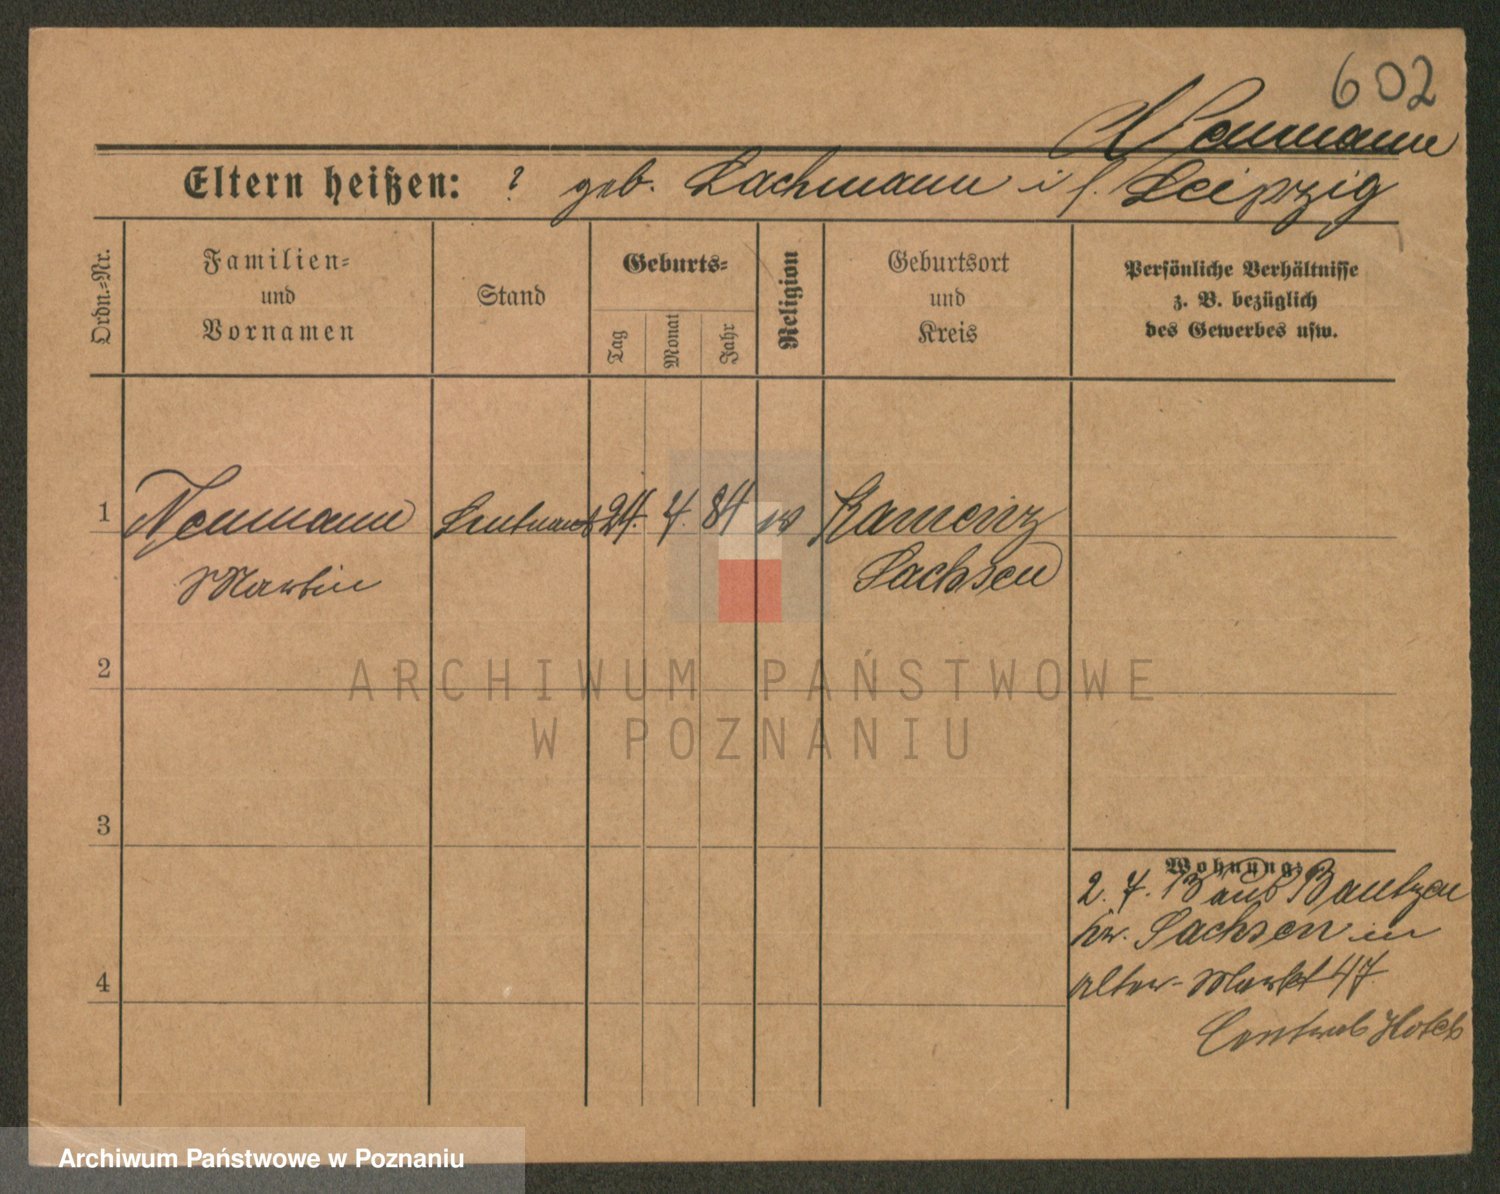 602
Neumann
Eltern heißen: ? geb. Lachmann i/. Leipzig
Ordn.=Nr.
Familien=
und
Vornamen
Stand
Geburts=
Tag
Monat
Jahr
Religion
Geburtsort
und
Kreis
Persönliche Verhältnisse
z. B. bezüglich
des Gewerbes usw.
1
Neumann
Martin
Leutnant
24.
4.
84
ev
Kamenz
Sachsen
2
3
4
Wohnung:
2. 7. 13 aus Bautzen
Sachsen in
Alter-Markt 47
Central Hotel
ARCHIWUM PAŃSTWOWE
W POZNANIU
Archiwum Państwowe w Poznaniu